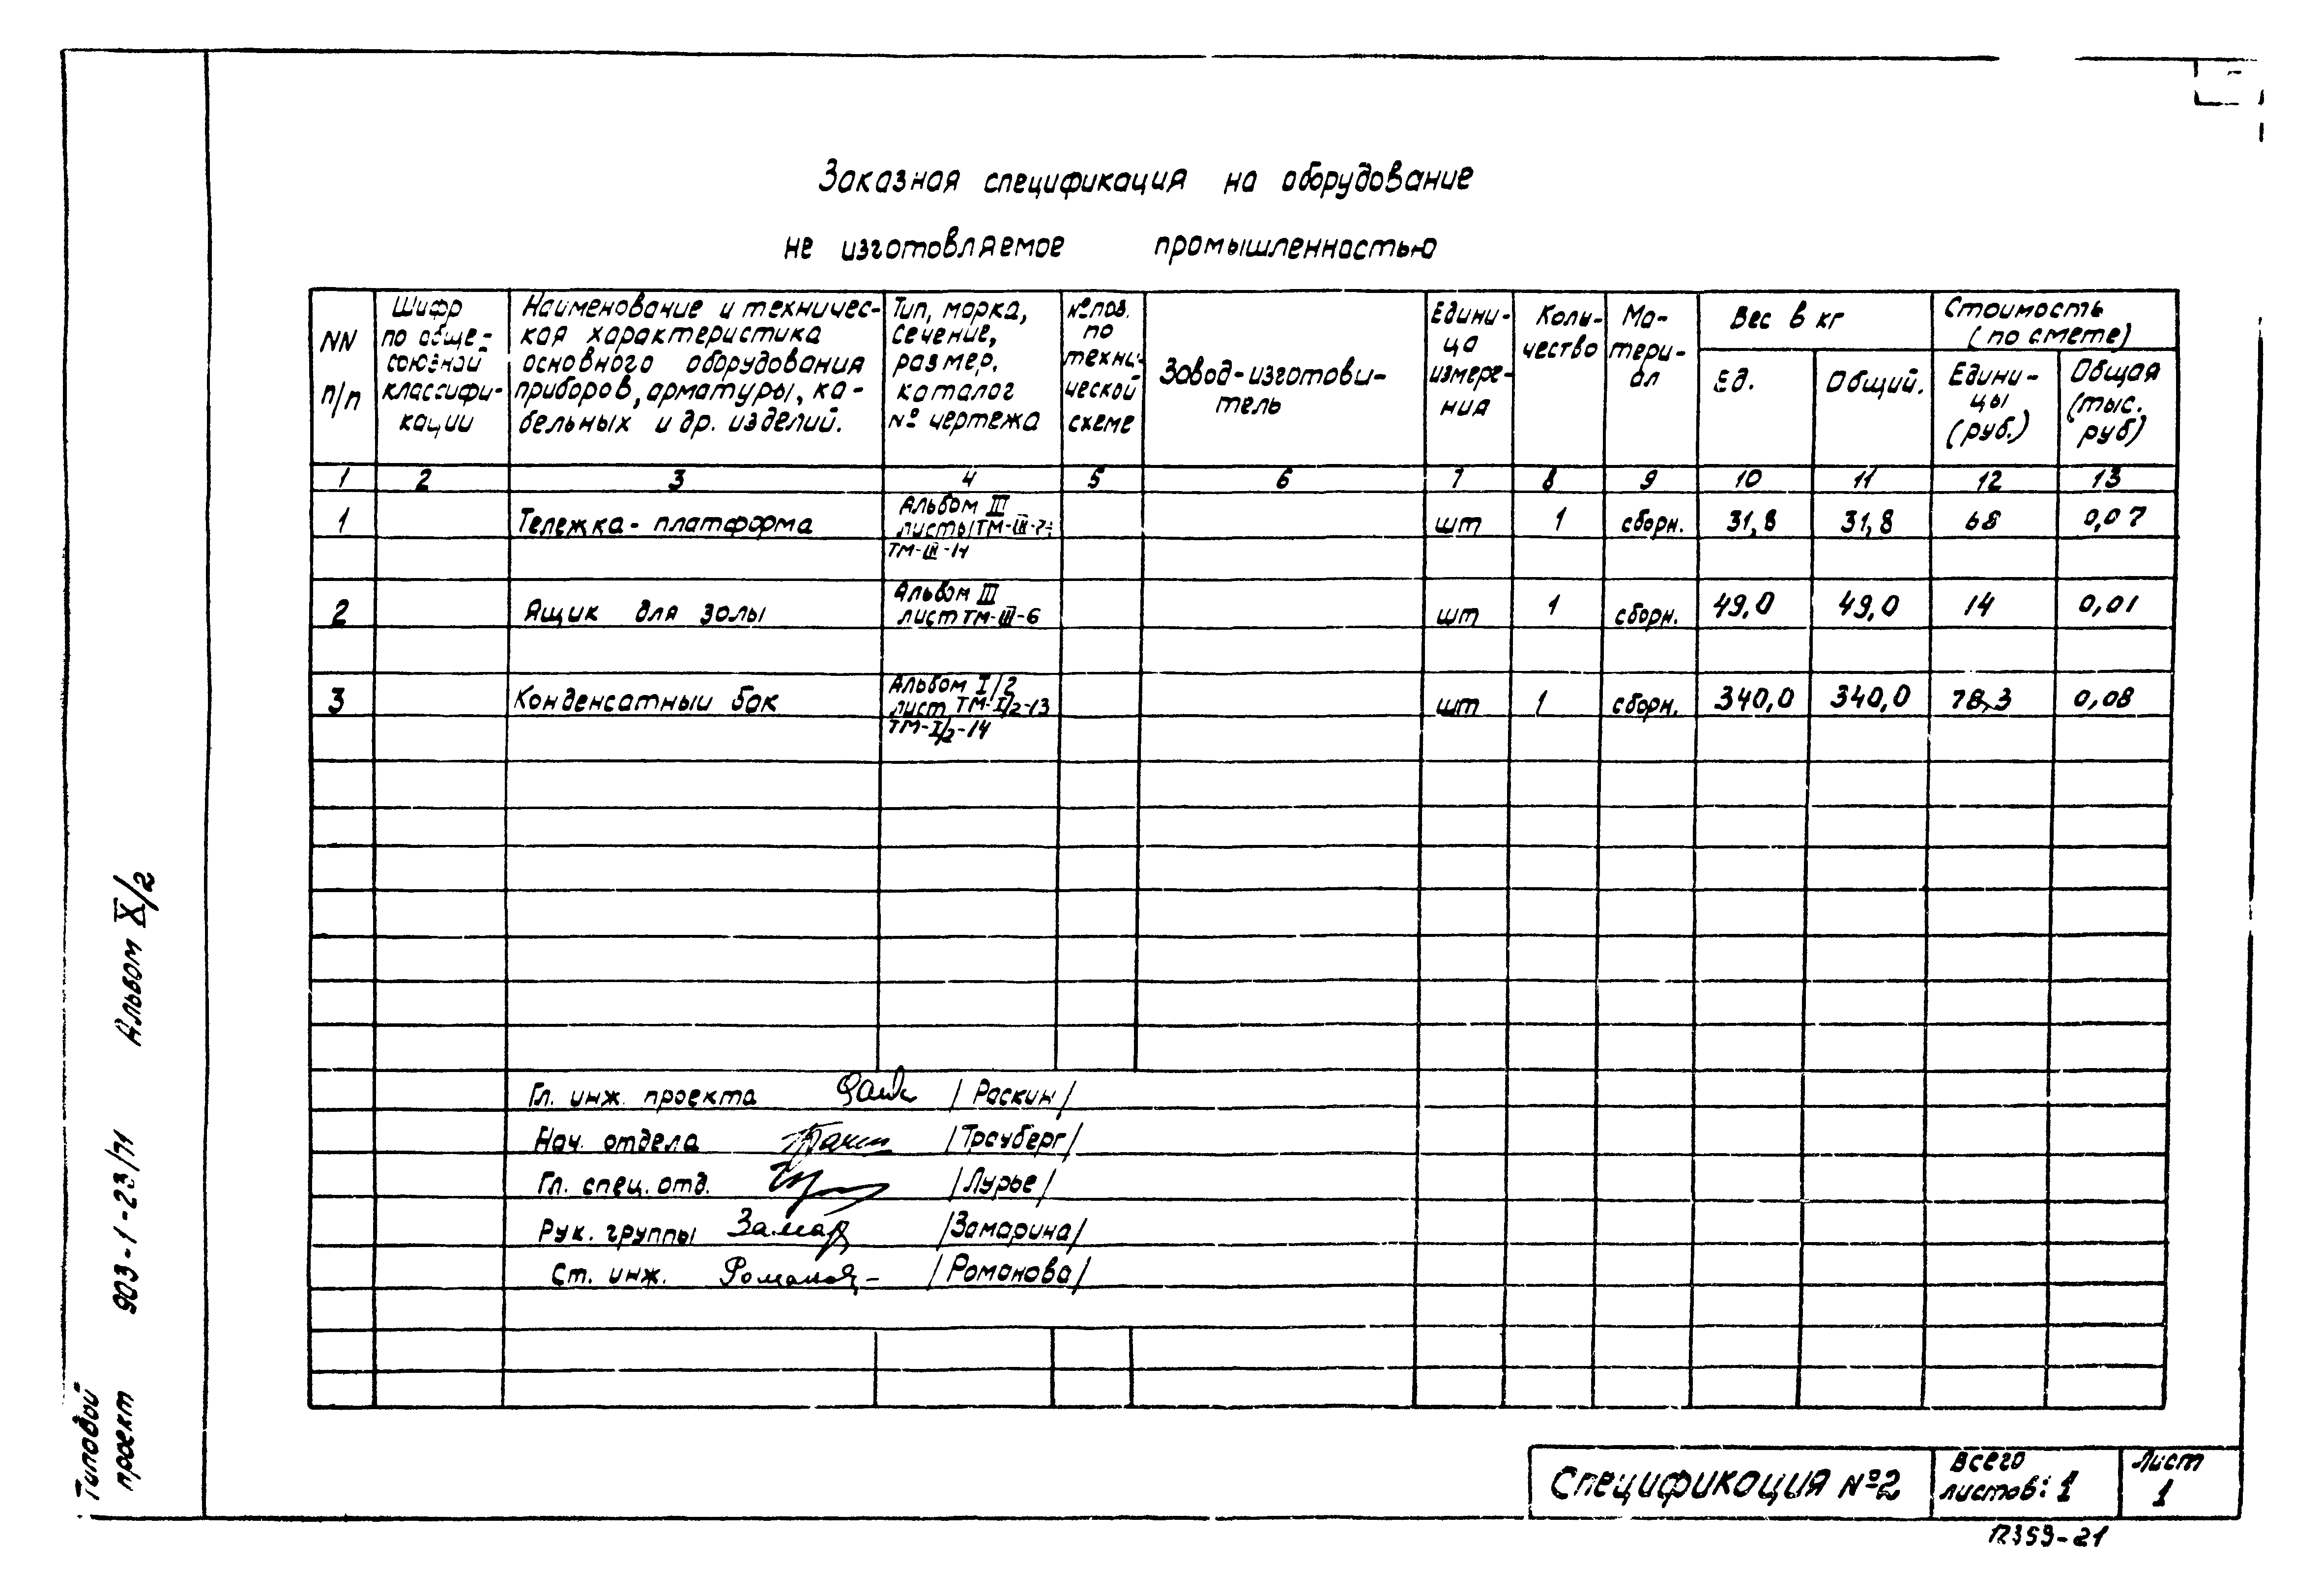 Заказная спецификация на оборудование
не изготовляемое промышленностью
NN п/п
Шифр по обще- союзной классифи- кации
Наименование и техничес- кая характеристика основного оборудования приборов, арматуры, ка- бельных и др. изделий.
Тип, марка, сечение, размер, каталог № чертежа
№ поз. по техни- ческой схеме
Завод-изготови- тель
Едини- ца измере- ния
Коли- чество
Ма- тери- ал
Вес в кг
Ед.
Общий.
Стоимость (по смете)
Едини- цы (руб.)
Общая (тыс. руб)
1 2 3 4 5 6 7 8 9 10 11 12 13
1 Тележка-платформа Альбом III листы ТМ-III-7÷ ТМ-III-14 шт 1 сборн. 31,8 31,8 68 0,07
2 Ящик для золы Альбом III лист ТМ-III-6 шт 1 сборн. 49,0 49,0 14 0,01
3 Конденсатный бак Альбом I/2 лист ТМ-I/2-13 ТМ-I/2-14 шт 1 сборн. 340,0 340,0 78,3 0,08
Гл. инж. проекта /Раскин/
Нач. отдела /Трауберг/
Гл. спец. отд. /Лурье/
Рук. группы Замар /Замарина/
Ст. инж. /Романова/
Спецификация №2
Всего листов: 1
Лист 1
12359-21
Типовой проект 903-1-23/71 Альбом X/2